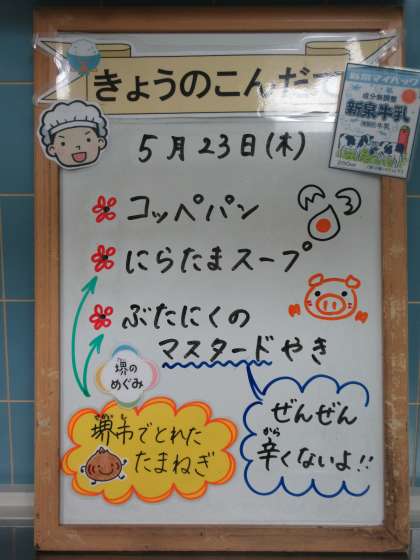 きょうのこんだて
新泉牛乳
5月23日(木)
コッペパン
にらたまスープ
ぶたにくの
マスタードやき
堺の
めぐみ
堺市でとれた
たまねぎ
ぜんぜん
辛くないよ!!
から